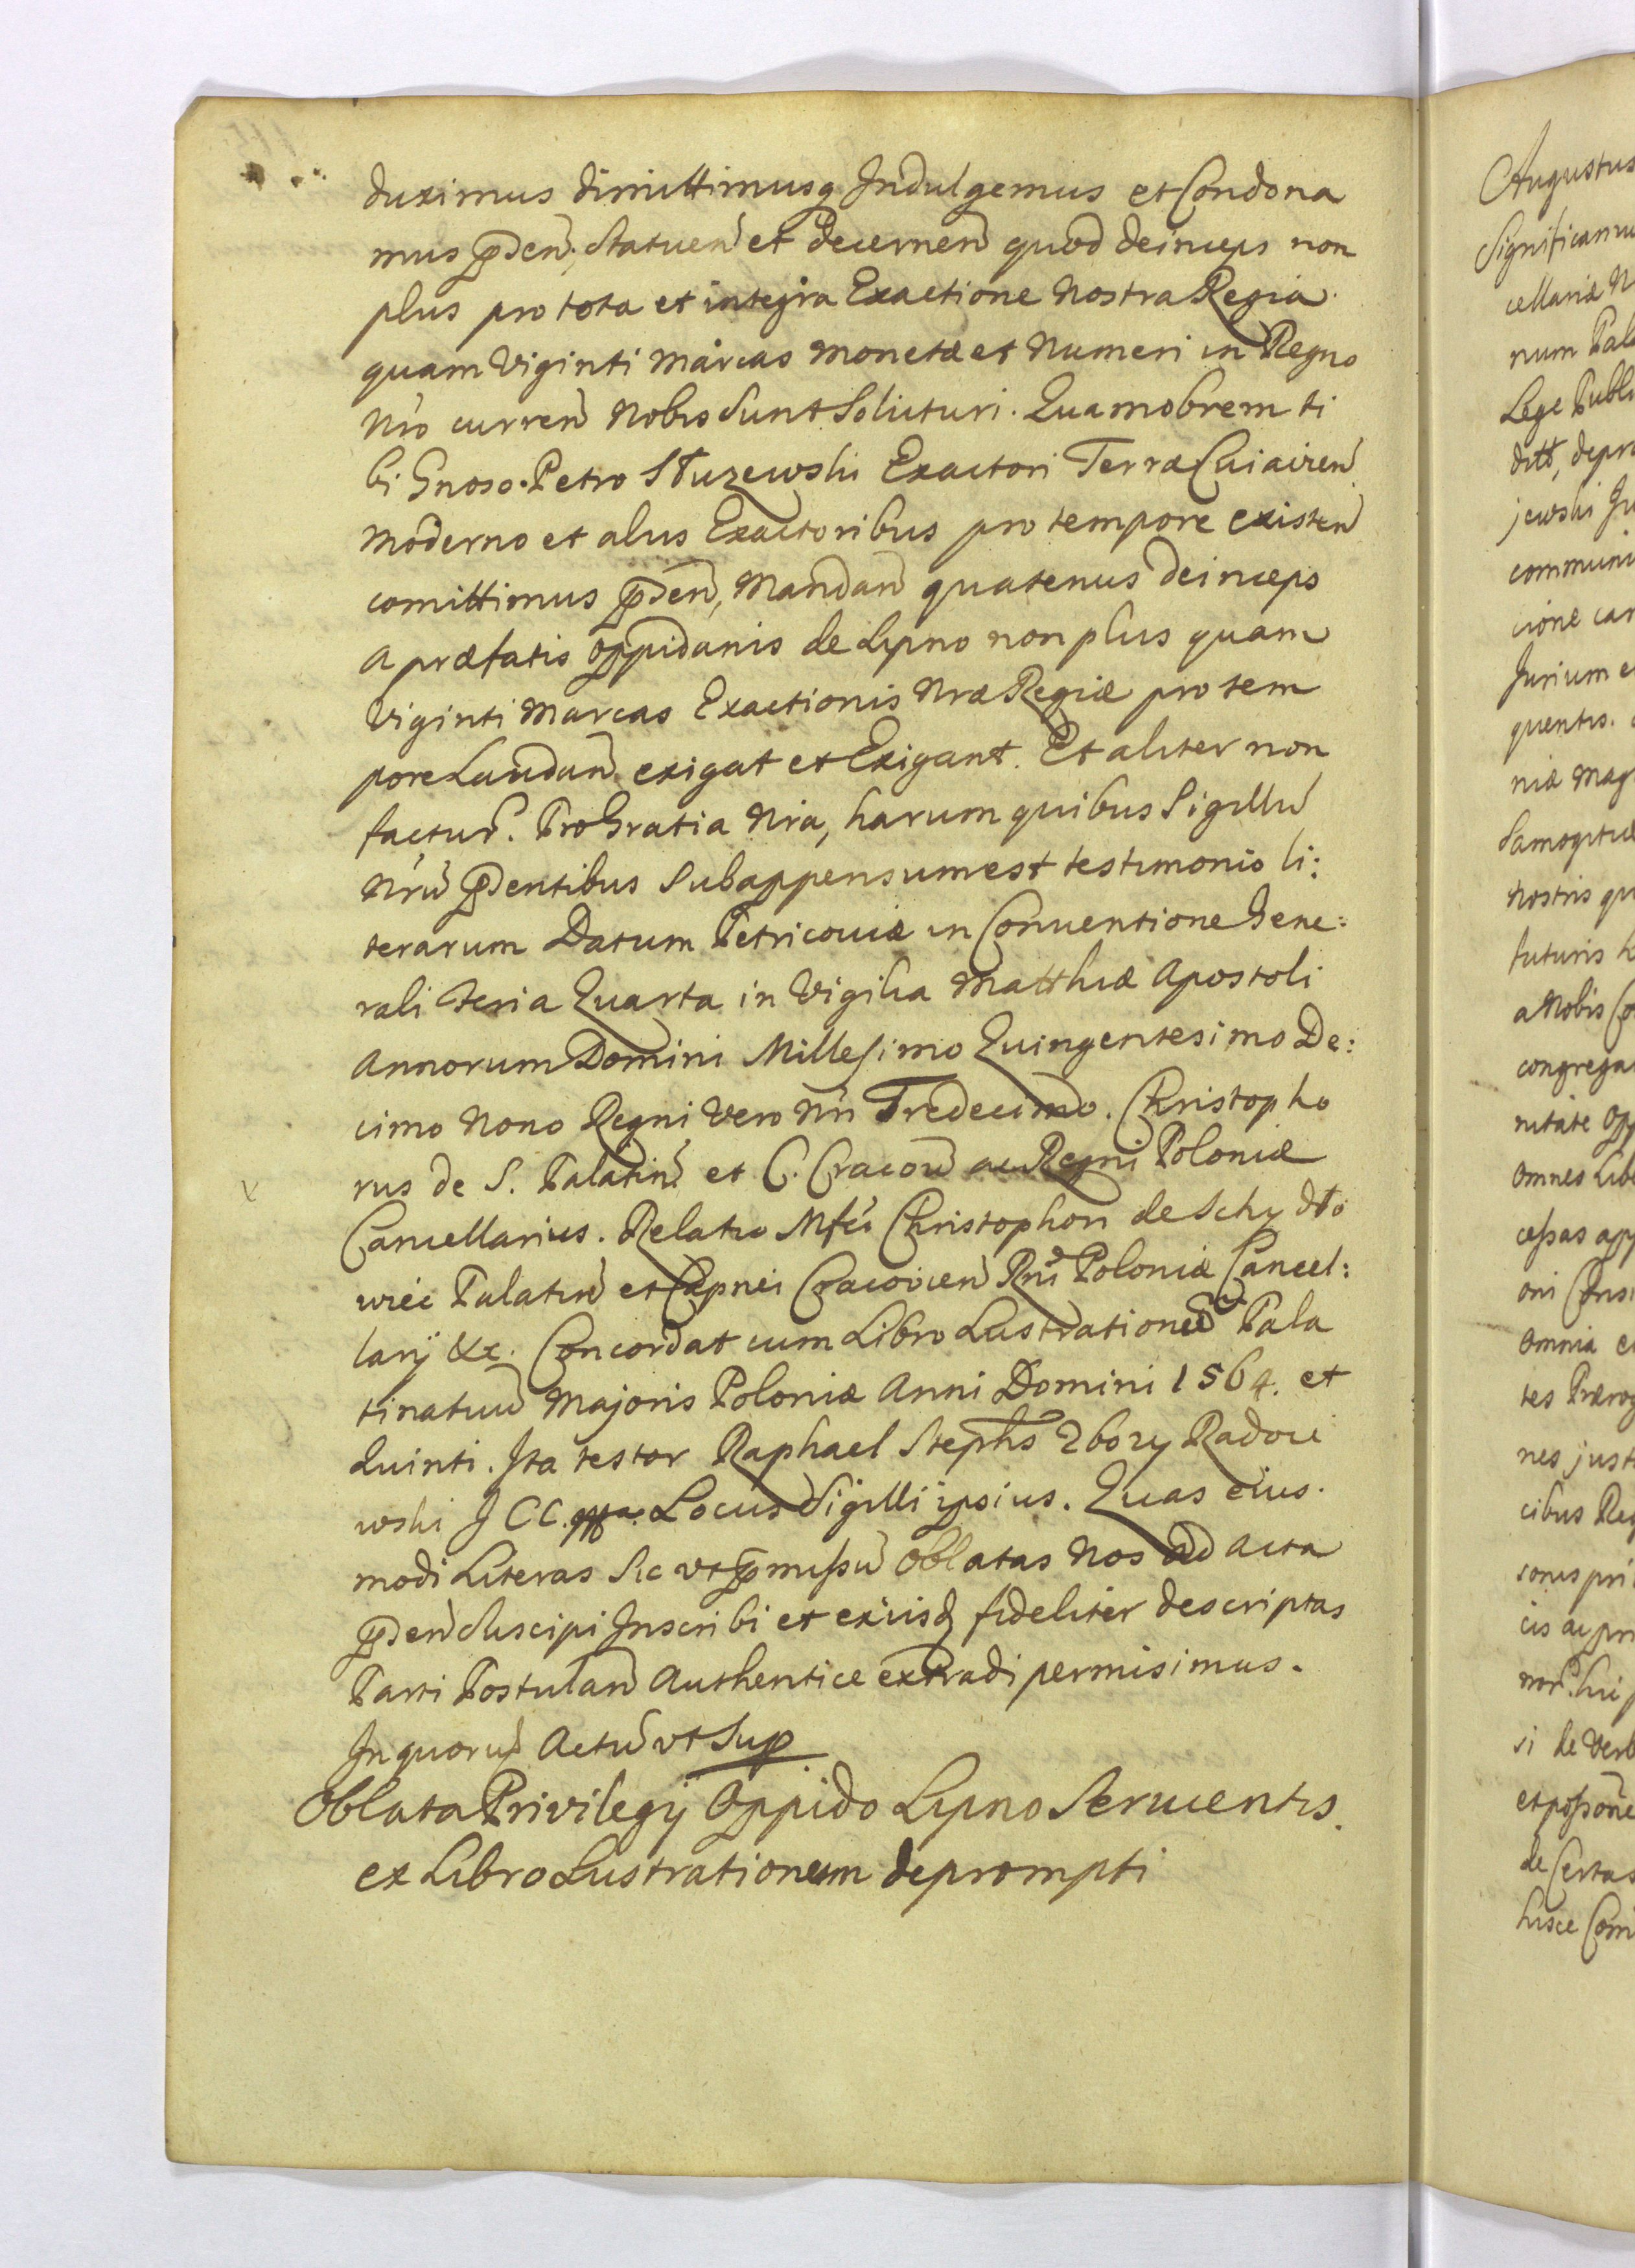 duximus dimittimusq Indulgemus et Condona
mus p̄den̄, Statuen̄ et decernen̄ quod deinceps non
plus pro tota et integra Exactione Nostra Regia
quam Viginti Marcas Monetæ et Numeri in Regno
Nro curren̄ Nobis Sunt Soluturi. Quamobrem ti
bi Gnoso. Petro Służewski Exactori Terræ Cuiavien̄
Moderno et aliis Exactoribus pro tempore existen̄
comittimus p̄den̄, Mandan̄ quatenus deinceps
a præfatis oppidanis de Lipno non plus quam
Viginti Marcas Exactionis Nræ Regiæ pro tem
pore Laudan̄ exigat et Exigant. Et aliter non
factur̄. Pro Gratia Nra, harum quibus Sigillū
Nrū p̄dentibus Subappensum est testimonio li:
terarum Datum Petricoviæ in Conventione Gene:
rali Feria Quarta in Vigilia Matthiæ Apostoli
Annorum Domini Millesimo Quingentesimo De:
cimo Nono Regni Vero Nri Tredecimo. Christopho
rus de S. Palatin̄ et C. Cracov̄ ac Regni Poloniæ
Cancellarius. Relatio Mfci Christophori de Schydło
wiec Palatin̄ et Cap̄nei Cracovien̄ Rni Poloniæ Cancel:
larÿ &c. Concordat cum Libro Lustrationū Pala
tinatuū Majoris Poloniæ Anni Domini 1564. et
Quinti. Ita testor Raphael Steph̄s Zbozy Radoie
wski J C C. Locus Sigilli ipsius. Quas eius
modi Literas Sic ut p̄missū oblatas Nos ad Acta
p̄den̄ Suscipi Inscribi et exiisd fideliter descriptas
Parti Postulan̄ Authentice extradi permisimus.
In quorū Actū ut Sup
Oblata Privilegÿ Oppido Lipno Servientis
ex Libro Lustrationum deprompti
Augustus
Significamu
cellariæ N
num Pala
Lege Publi
jewski Ju
communi
cione
Jurium e
quentis.
niæ Mag
Samogitiæ
Nostris qu
futuris h
a Nobis Co
congrega
nitate Opp
Omnes Lib
cessas app
oni
Omnia
tes Prærog
nes just
cibus Reg
cis ac
si de Verb
de Certas
hisce Com